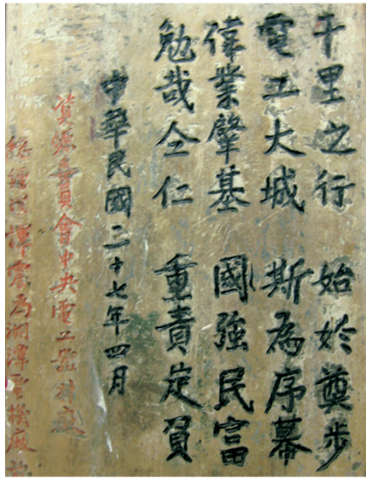 千里之行 始於奠步
電工大城 斯為序幕
偉業肇基 國強民富
勉哉仝仁 重責是負
中華民國二十七年四月
資源委員會中央電工器材廠
總經理惲震為湘潭電機廠